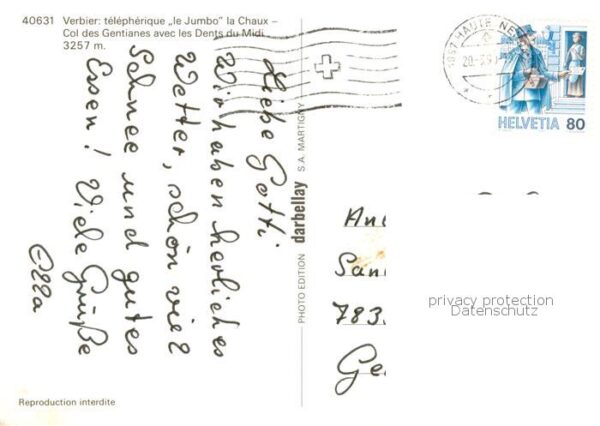 40631 Verbier: téléphérique „le Jumbo" la Chaux –
Col des Gentianes avec les Dents du Midi
3257 m.
Liebe Gotti
Wir haben herrliches
Wetter, schön viel
Schnee und gutes
Essen! Viele Grüße
PHOTO EDITION darbellay S.A. MARTIGNY
Reproduction interdite
HELVETIA 80
An
San
783
Ge
privacy protection
Datenschutz